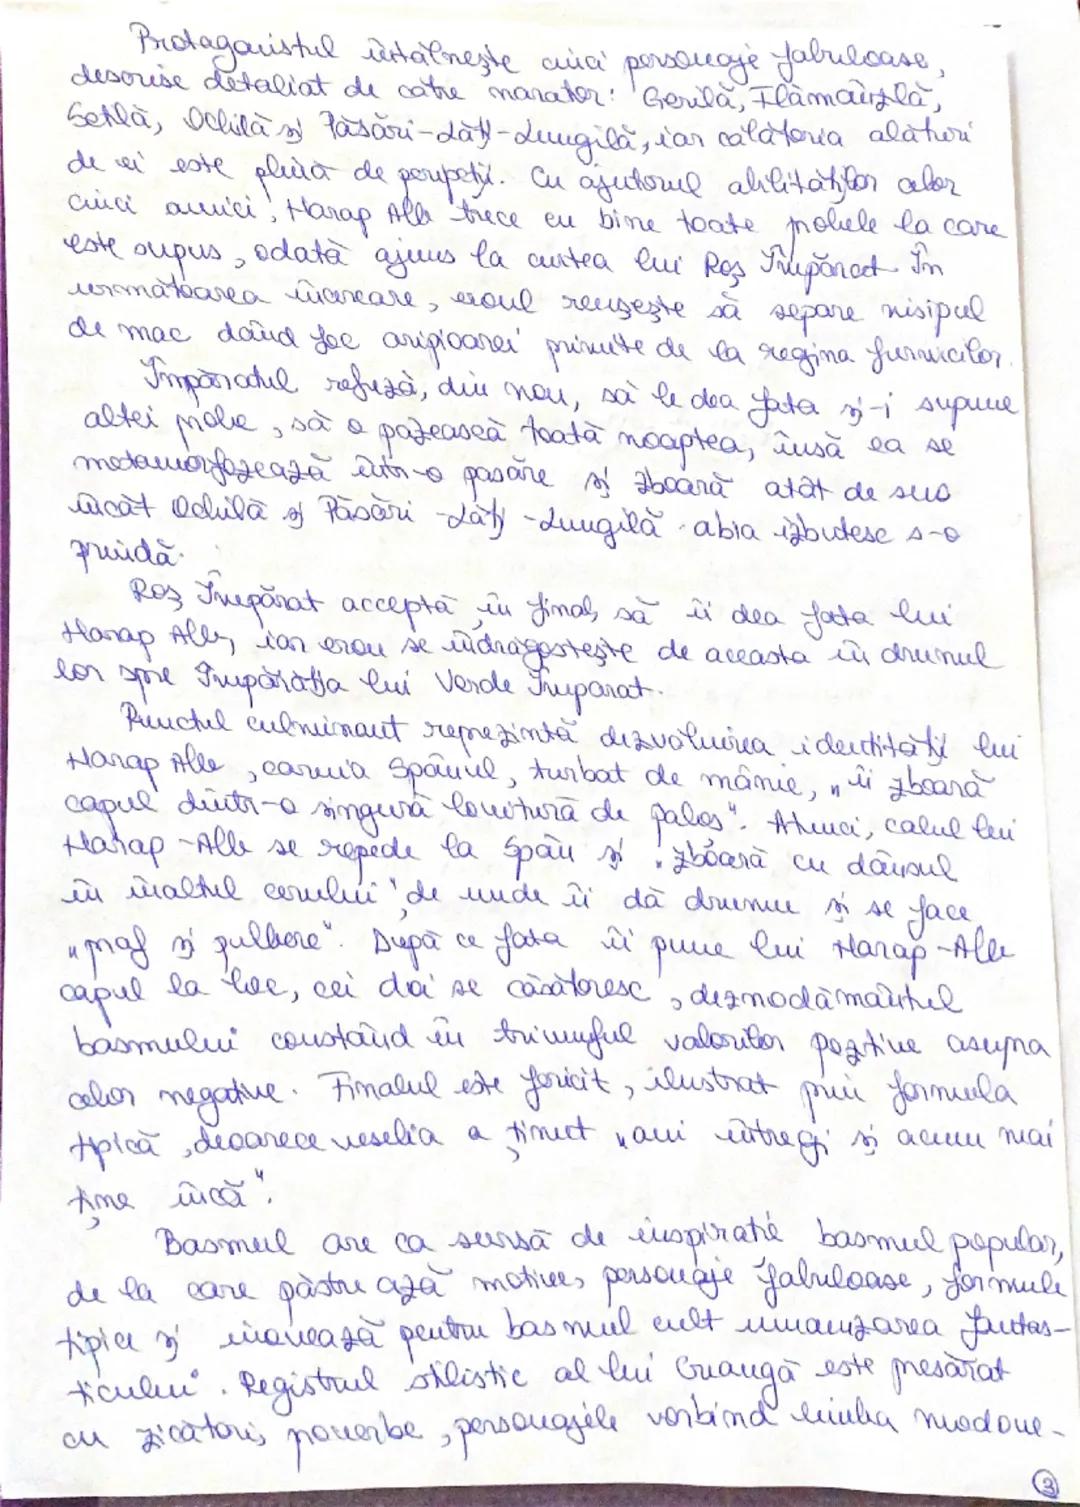 Protagonistul întâlnește cinci personaje fabuloase,
descrise detaliat de către narator: Gerilă, Flămânzilă,
Setilă, Ochilă și Păsări-Lăți-Lungilă, iar călătoria alături
de ei este plină de peripeții. Cu ajutorul abilităților celor
cinci amici, Harap Alb trece cu bine toate probele la care
este supus, odată ajuns la curtea lui Roș Împărat. În
următoarea încercare, eroul reușește să separe nisipul
de mac dând foc aripioarei primite de la regina furnicilor.
Împăratul refuză, din nou, să le dea fata și-i supune
altei probe, să o păzească toată noaptea, însă ea se
metamorfozează într-o pasăre și zboară atât de sus
încât Ochilă și Păsări-Lăți-Lungilă abia izbutesc s-o
prindă.
Roș Împărat acceptă, în final, să îi dea fata lui
Harap Alb, iar erou se îndrăgostește de aceasta în drumul
lor spre Împărăția lui Verde Împarat.
Punctul culminant reprezintă dezvăluirea identității lui
Harap Alb, căruia Spânul, turbat de mânie, „îi zboară
capul dintr-o singură lovitură de paloș". Atunci, calul lui
Harap-Alb se repede la Spân și „zboară cu dânsul
în înaltul cerului" de unde îi dă drumu și se face
„praf și pulbere". După ce fata îi pune lui Harap-Alb
capul la loc, cei doi se căsătoresc, deznodământul
basmului constând în triumful valorilor pozitive asupra
celor negative. Finalul este fericit, ilustrat prin formula
tipică, deoarece veselia a ținut „ani întregi și acum mai
ține încă".
Basmul are ca sursă de inspirație basmul popular,
de la care păstrează motive, personaje fabuloase, formule
tipice și inovează pentru basmul cult umanizarea fantas-
ticului. Registrul stilistic al lui Creangă este presărat
cu zicători, proverbe, personajele vorbind limba moldove-
3